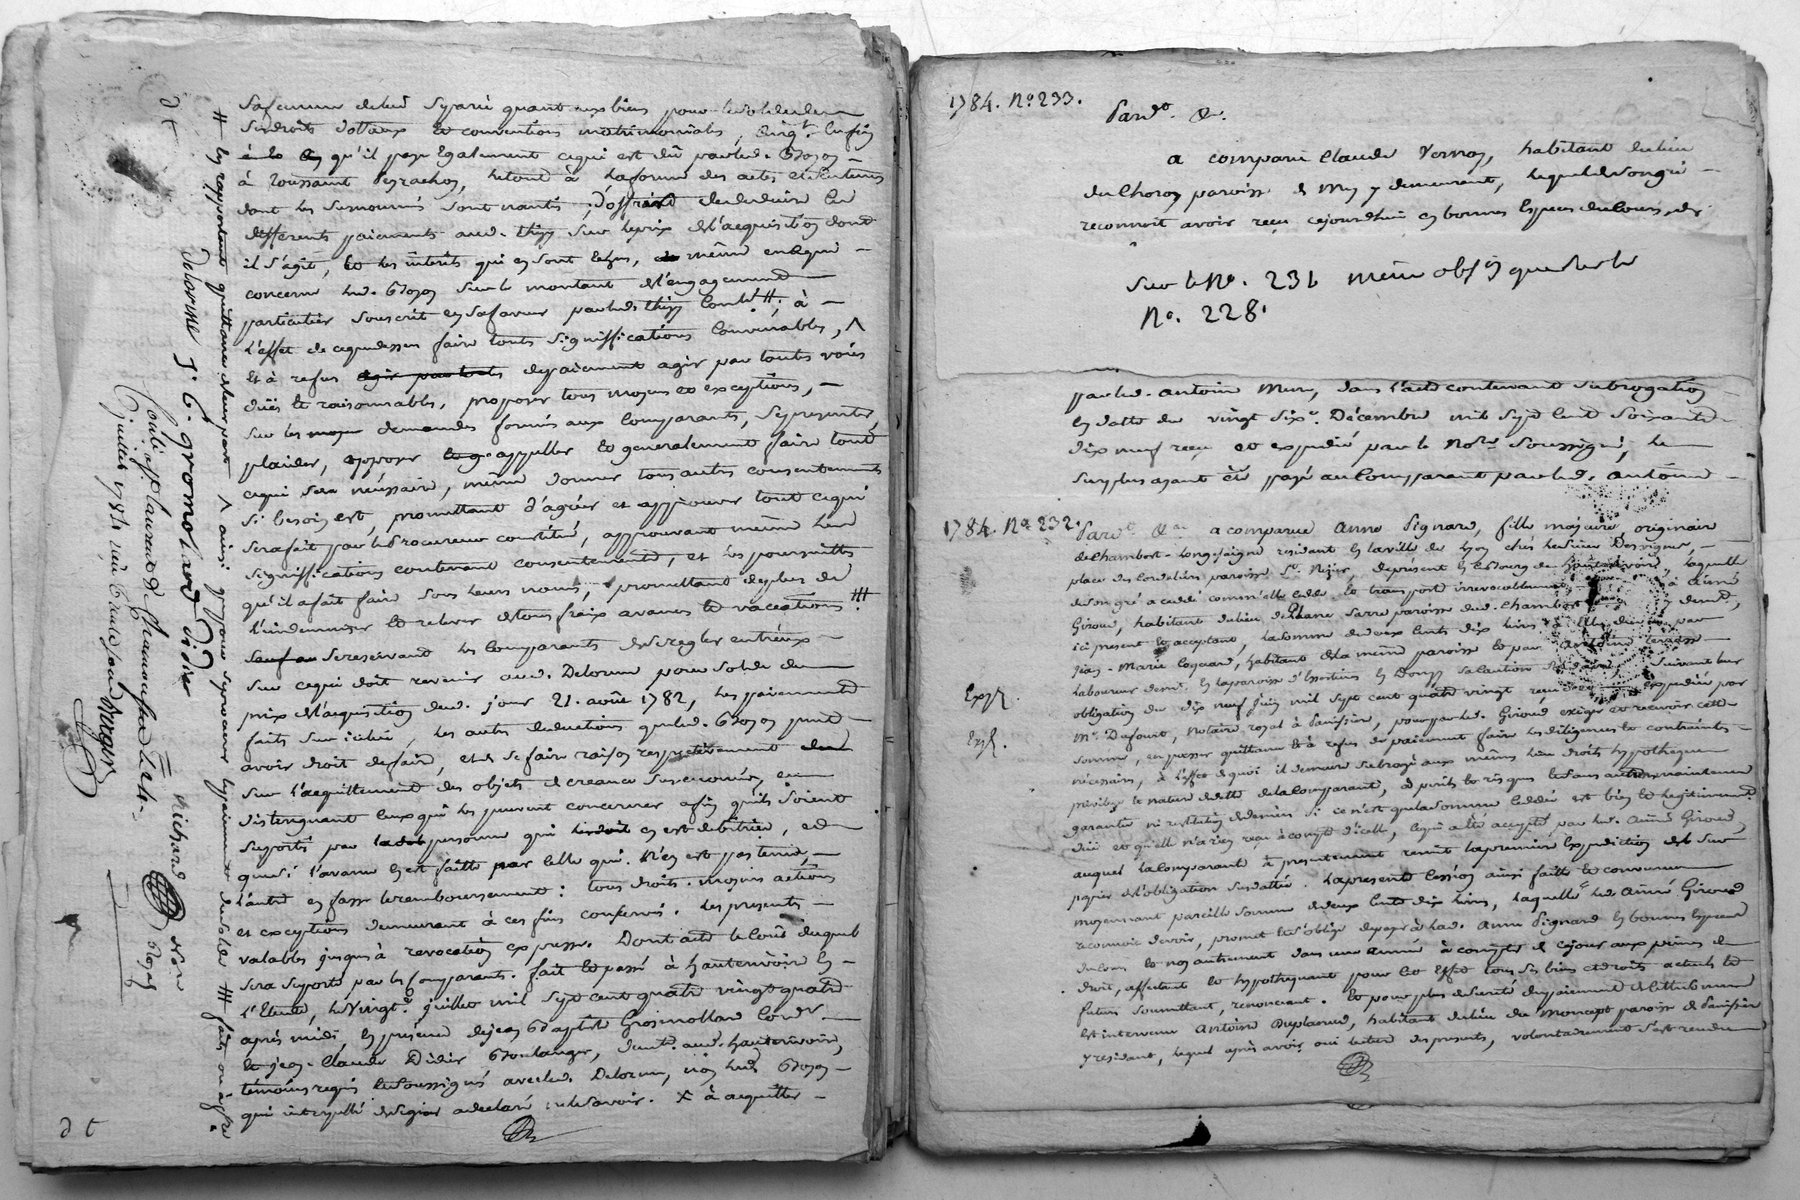 sa femme de lui séparée quant aux biens pour
ses droits dottaux et conventions matrimoniales,
qu'il paye également ce qui est dû par led. Boyon
à Toussaint Peyrachon, le tout à la forme des actes
dont les susnommés sont nantis;
differents paiements aud. Thizy sur le prix de l'acquisition dont
il s'agit, et les intérets qui en sont echus, même en ce qui
concerne led. Boyon sur le montant de l'engagement
particulier souscrit en sa faveur par led. Thizy #; à
l'effet de ce que dessus faire toutes significations convenables, Λ
et à refus de paiement agir par toutes voies
dües et raisonnables, proposer tous moyens et exceptions,
sur les demandes formées aux comparants, se presenter,
plaider, opposer appeller et generalement faire tout
ce qui sera nécessaire, même donner tous autres consentements
si besoin est, promettant d'agréer et approuver tout ce qui
sera fait par led. Procureur constitué, approuvant même les
significations contenant consentement, et les poursuittes
qu'il a fait faire sous leurs noms, promettant de plus de
l'indemniser et relever de tous fraix avances et vacations ###.
se reservant les comparants de se regler entréux
sur ce qui doit revenir aud. Delorme pour solde du
prix de l'acquisition dud. jour 21. août 1782, les paiements
faits sur icelui, les autres deductions que led. Boyon peut
avoir droit de faire, et de se faire raison respectivement
sur l'acquittement des objets de creance susenoncés, en
distinguant ceux qui les peuvent concerner afin qu'ils soient
suportés par la personne qui en est debitrice, et
que si l'avance en est faitte par celle qui n'en est pas tenue,
l'autre en fasse le remboursement: tous droits, moyens actions
et exceptions demeurant à ces fins conservés. les presentes
valables jusques à revocation expresse. Dont acte le coût duquel
sera suporté par les comparants. fait et passé à hauterivoire en
l'Etude, le vingt juillet mil sept cent quatre vingt quatre
après midi, en présence de jean Baptiste Gromollard
et jean-claude Didier Boulanger, dud. hauterivoire,
témoins requis et soussignés avec led. Delorme, non led. Boyon
qui interpellé de signer a declaré ne le savoir. X à acquitter
# en rapportant quittance de leur part Λ ainsi que pour se procurer le paiement du solde ### faits ou à faire.
delorme J. B. gromolard didier
Richard
9 juillet 1784
d t
d t
1784. No. 233.
Pard. &.
a comparu Claude Vernay, habitant du lieu
du Choron paroisse de y demeurant, lequel de son gré
reconnoit avoir reçu cejourdhui en bonnes Espèces du Cours, de
Sur le No. 231 même obson que sur le
No. 228.
par led. antoine Mure, dans l'acte contenant subrogation
en datte du vingt six Décembre mil sept cent soixante
dix neuf reçu et expedié par le Nore. soussigné, le
surplus ayant été payé au comparant par led. Antoine
1784. No. 232.
Pard. &a. a comparue Anne Pignard, fille majeure, originaire
de Chambost-Longesaigne residant en la ville de Lyon chés le sieur
place des Cordeliers paroisse St. Nizier, de present en ce Bourg de hauterivoire, laquelle
de son gré a cedé comm'elle cedde et transporte irrevocablement à Aimé
Giroud, habitant du lieu de paroisse dud. Chambost y demt.,
ici present et acceptant, la somme de deux cents dix livres à elle due par
Jean-Marie habitant de la même paroisse et par antoine
laboureur demt. en la paroisse d'Essertines en Donzy sa caution solidaire, suivant leur
obligation du dix neuf juin mil sept cent quatre vingt, reçue et expediée par
Me. Dufourt, notaire royal à Panissiere, pour par led. Giroud exiger et recevoir cette
somme, en passer quittance et à refus de paiement faire les diligences et contraintes
nécessaires, à l'effet de quoi il demeure subrogé aux mêmes lieu droits hypotheque
privilege et nature de dette de la comparante, à perils et risques et sans autre maintenue
garantie ni restitution de deniers si ce n'est que la somme cedée est bien et legitimement
düe et qu'elle n'a rien reçu à compte d'icelle, ce qui a été accepté par led. Aimé Giroud,
auquel la comparante a presentement remit la premiere Expedition de sur
papier de l'obligation susdattée. la presente cession ainsi faitte et convenue
moyennant pareille somme de deux cents dix livres, laquelle led. Aimé Giroud
reconnoit devoir, promet et s'oblige de payer à lad. Anne Pignard en bonnes Especes
du cours et non autrement dans une année à compter de cejour aux peines de
droit, affectant et hypothequant pour cet effet tous ses biens et droits actuels et
futurs soumettant, renonceant. Et pour plus de sureté du paiement de cette somme
est intervenu Antoine Duplanud, habitant du lieu du Moncept paroisse de Panissiere
y residant, lequel après avoir oui lecture des presentes, volontairement s'est rendu
Exp.
Exp.